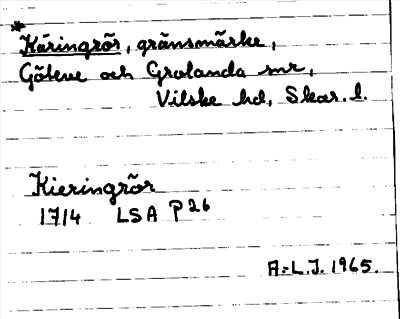 *
Käringrör, gränsmärke,
Göteve och Grolanda snr,
Vilske hd, Skar. l.
Kieringrör
1714 LSA P26
A-L.J. 1965.